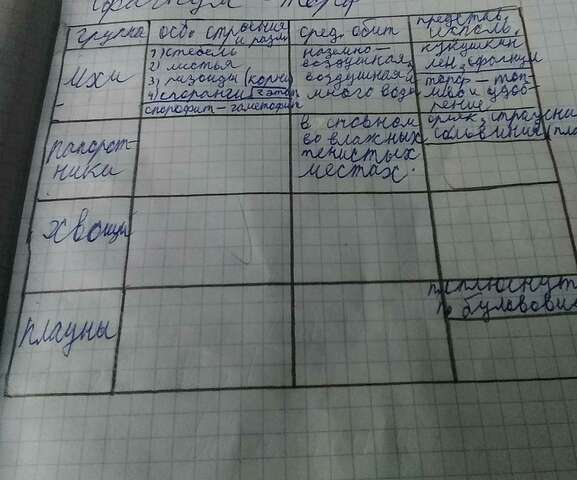 сфагнум - торф
группа
особ. строения и разм.
сред. обит
представ,
использ.
Мхи
1) стебель
2) листья
3) ризоиды (корни)
4) споранги (этап
спорофит - гаметофит
наземно -
воздушная,
воздушная и
много воды
кукушкин
лен, сфагнум
торф - топ-
ливо и удоб-
рение
папорот-
ники
в основном
во влажных
тенистых
местах.
орляк, страусни
головиния (пла
хвощи
плауны
п. плюснут
п. булавовид